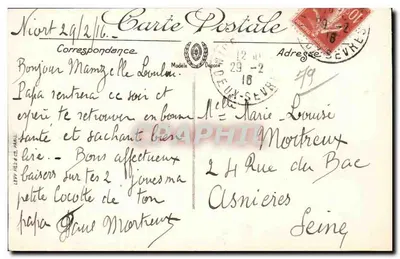 Niort 29/2/16.
Carte Postale
Correspondance
Adresse
Bonjour Mamzelle Loulou.
Papa rentrera ce soir et
espère te retrouver en bonne
santé et sachant bien
lire. - Bons affectueux
baisers sur tes 2 joues ma
petite Cocotte de ton
papa Paul Mortreux
Melle Marie-Louise
Mortreux
24 Rue du Bac
Asnières
Seine
12
29-2
16
DEUX-SEVRES
29-2
16
10
LEVY FILS & CIE, PARIS